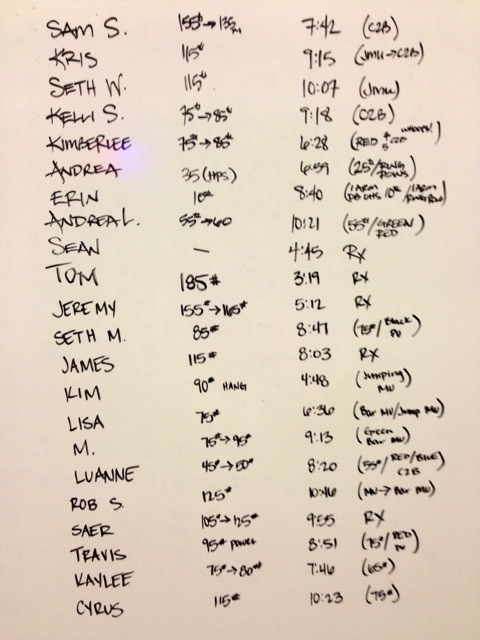 SAM S. 155# → 135 7:42 (C2B)
KRIS 115# 9:15 (JMU → C2B)
SETH W. 115# 10:07 (JMU)
KELLI S. 75# → 85# 9:18 (C2B)
KIMBERLEE 75# → 85# 6:28 (RED + 5 C2B WHOOPS!)
ANDREA 35 (HPS) 6:59 (25#/RING ROWS)
ERIN 10# 8:40 (1 ARM 10#/1 ARM RING ROW)
ANDREA L. 55# → 60 10:21 (55#/GREEN RED)
SEAN — 4:45 RX
TOM 185# 3:19 RX
JEREMY 155# → 165# 5:12 RX
SETH M. 85# 8:47 (75#/Black PU)
JAMES 115# 8:03 RX
KIM 90# HANG 4:48 (Jumping MU)
LISA 75# 6:36 (Bar MU/Jump MU)
M. 75# → 95# 9:13 (Green Bar MU)
LUANNE 45# → 50# 8:20 (55#/RED/BLUE C2B)
ROB S. 125# 10:46 (MU → Bar MU)
SAER 105# → 125# 9:55 RX
TRAVIS 95# POWER 8:51 (75#/RED PU)
KAYLEE 75# → 80# 7:46 (65#)
CYRUS 115# 10:23 (75#)